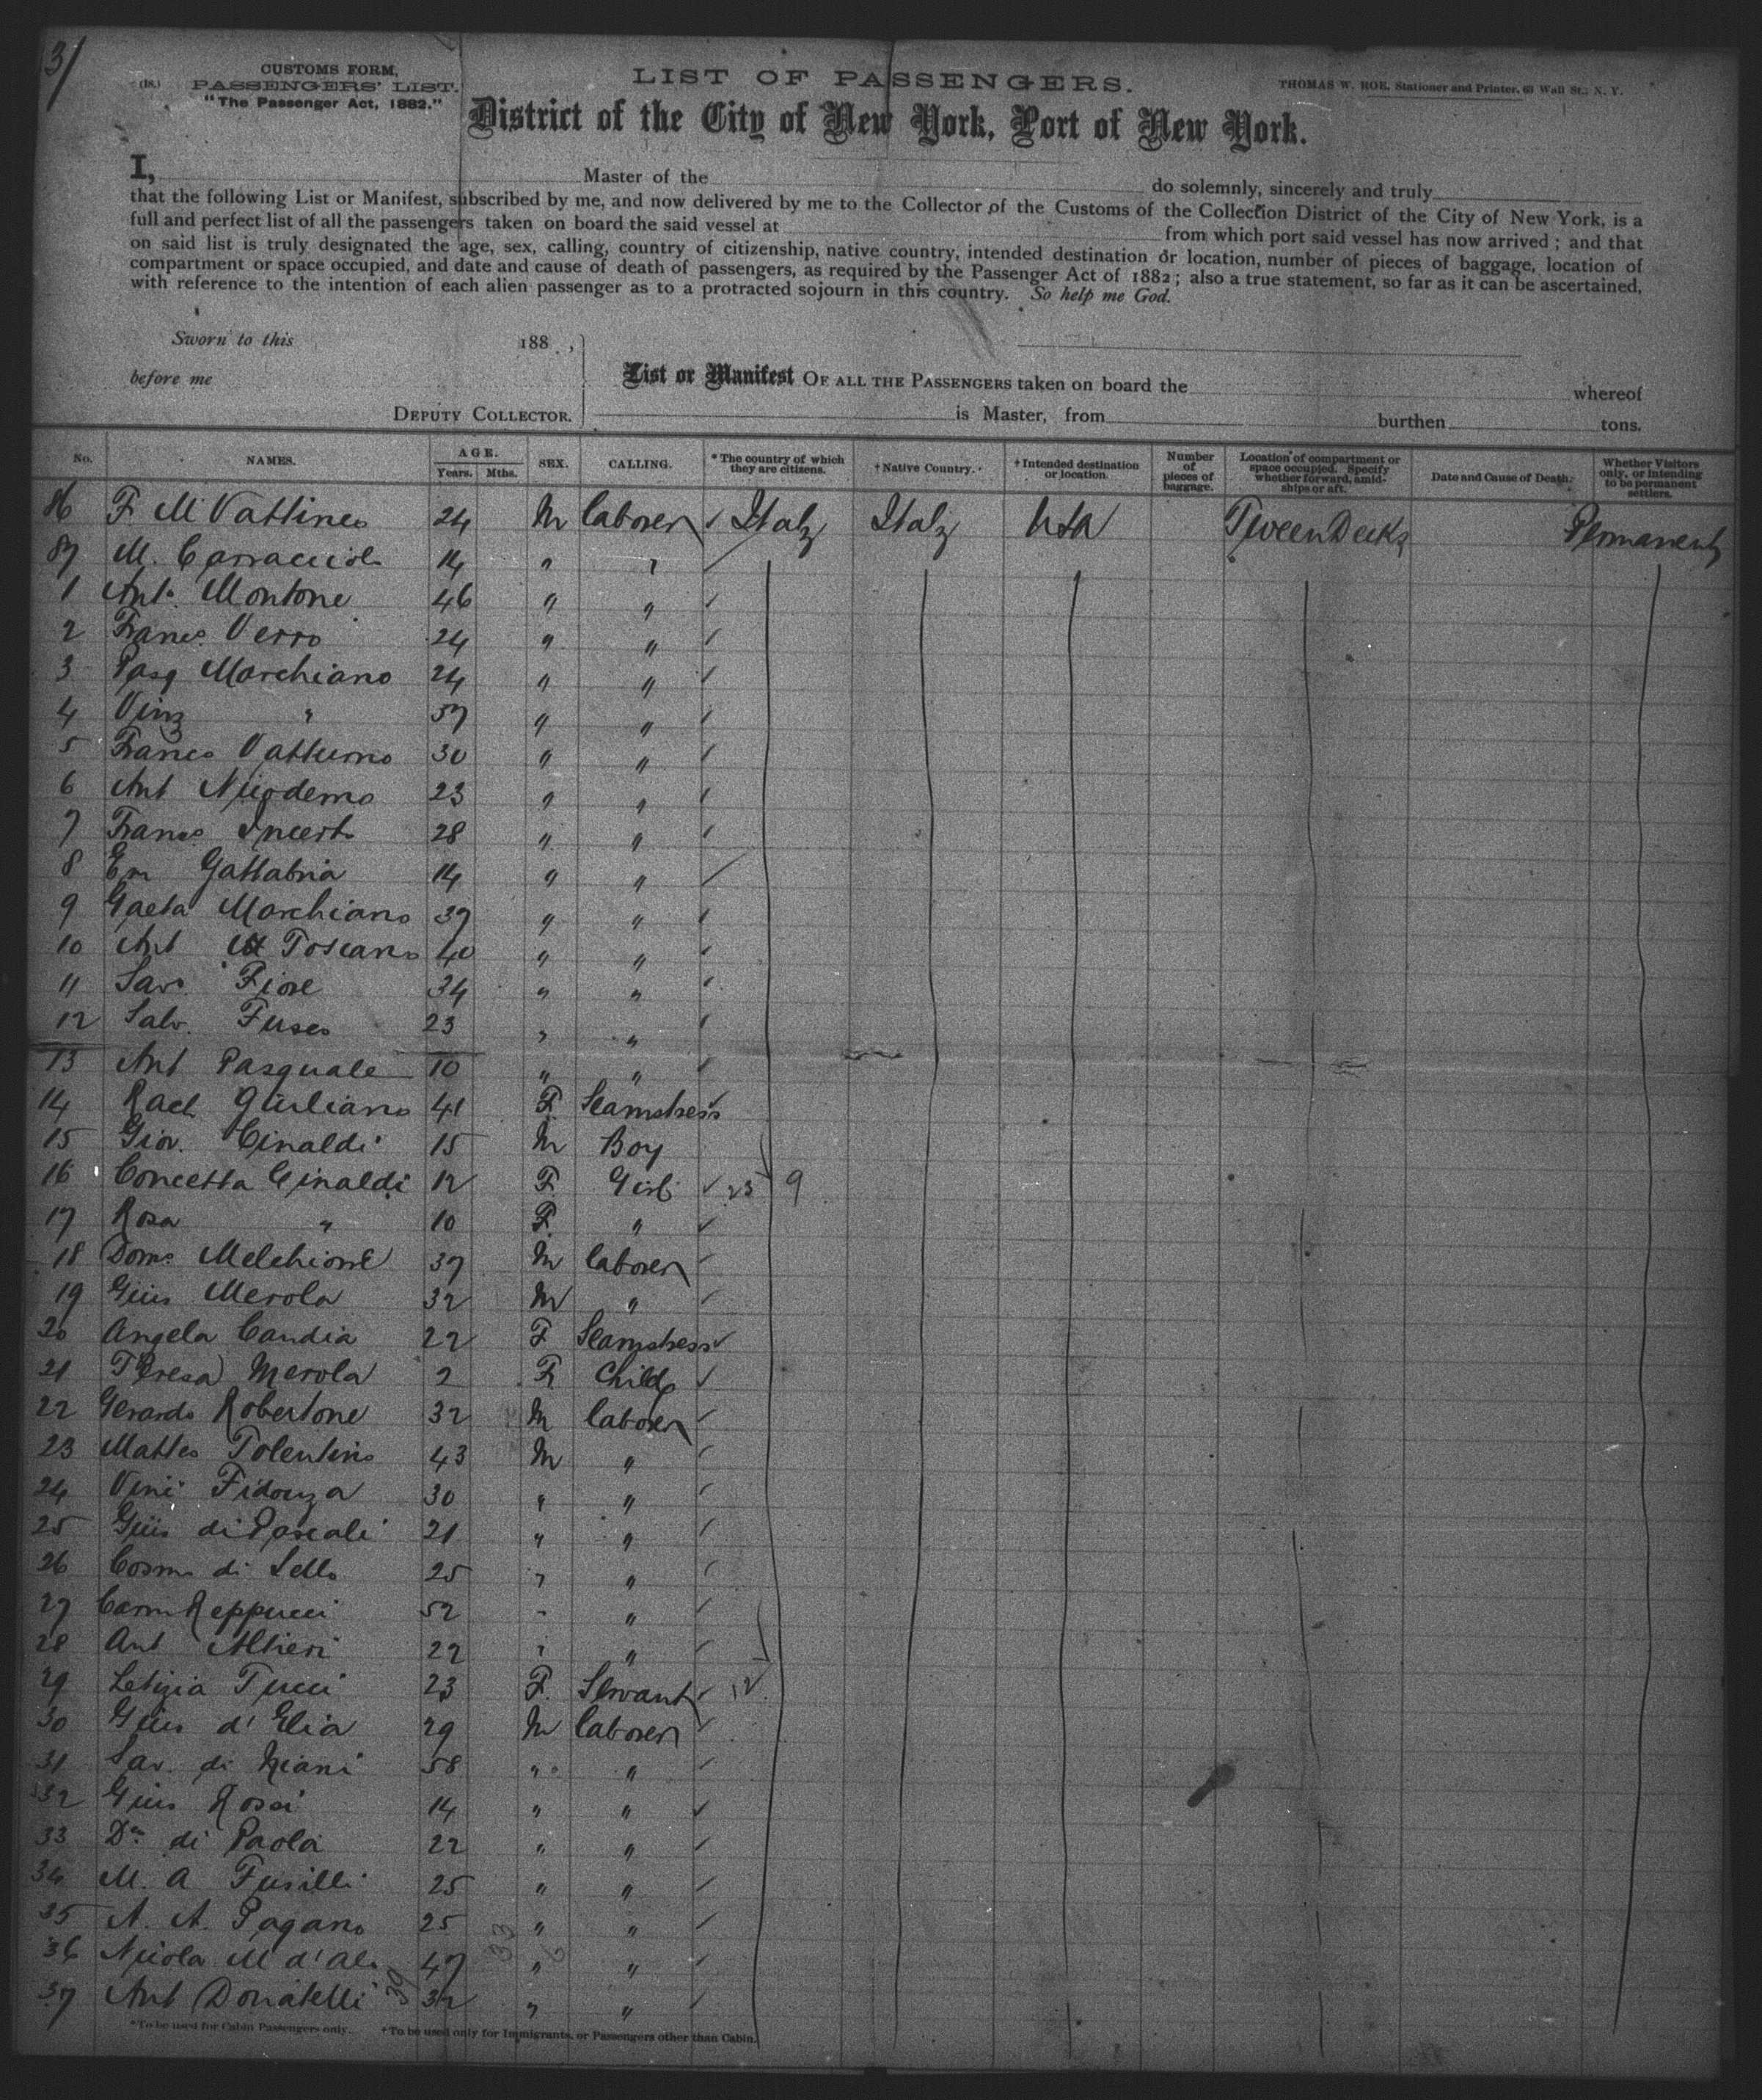 31
CUSTOMS FORM,
(18.) PASSENGERS' LIST.
"The Passenger Act, 1882."
LIST OF PASSENGERS.
THOMAS W. ROE, Stationer and Printer, 63 Wall St., N. Y.
District of the City of New York, Port of New York.
I, Master of the do solemnly, sincerely and truly
that the following List or Manifest, subscribed by me, and now delivered by me to the Collector of the Customs of the Collection District of the City of New York, is a
full and perfect list of all the passengers taken on board the said vessel at from which port said vessel has now arrived ; and that
on said list is truly designated the age, sex, calling, country of citizenship, native country, intended destination or location, number of pieces of baggage, location of
compartment or space occupied, and date and cause of death of passengers, as required by the Passenger Act of 1882 ; also a true statement, so far as it can be ascertained,
with reference to the intention of each alien passenger as to a protracted sojourn in this country. So help me God.
Sworn to this 188 ,
before me
DEPUTY COLLECTOR.
List or Manifest OF ALL THE PASSENGERS taken on board the whereof
is Master, from burthen tons.
No. NAMES. AGE. Years. Mths. SEX. CALLING. * The country of which they are citizens. † Native Country. † Intended destination or location Number of pieces of baggage. Location of compartment or space occupied. Specify whether forward, amidships or aft. Date and Cause of Death. Whether Visitors only, or intending to be permanent settlers.
86 F. M Vattineo 24 M laborer Italy Italy USA Tween Decks Permanent
87 M. Carracciolo 14 " "
1 Anto. Montone 46 " "
2 Franco. Verro 24 " "
3 Pasq Marchiano 24 " "
4 Vinz " 37 " "
5 Franco Vatturno 30 " "
6 Ant Nicodemo 23 " "
7 Franco Incerto 28 " "
8 Em Gattabria 14 " "
9 Gaeta Marchiano 37 " "
10 Ant Toscano 40 " "
11 Savo. Fiore 34 " "
12 Salv. Fusco 23 " "
13 Ant Pasquale 10 " "
14 Rach Giuliano 41 F. Seamstress
15 Giov. Cinaldi 15 M Boy
16 Concetta Cinaldi 12 F. Girl 23 9
17 Rosa " 10 F. "
18 Domo Melchione 37 M laborer
19 Gius Merola 32 M "
20 Angela Candia 22 F Seamstress
21 Teresa Merola 2 F. Child
22 Gerardo Robertone 32 M laborer
23 Matteo Tolentino 43 M "
24 Vinc Fidonza 30 " "
25 Gius di Pascali 21 " "
26 Cosmo di Lello 25 " "
27 Carm Reppucci 52 " "
28 Ant Altieri 22 " "
29 Letizia Tucci 23 F. Servant 12
30 Gius d'Elia 29 M laborer
31 Sav. di Miani 58 " "
32 Gius Rossi 14 " "
33 Do. di Paola 22 " "
34 M. A Fusilli 25 " "
35 A. A. Pagano 25 " "
36 Nicola M d'Ali 47 " "
37 Ant Donatelli 32 " "
39 33 6
*To be used for Cabin Passengers only. †To be used only for Immigrants, or Passengers other than Cabin.